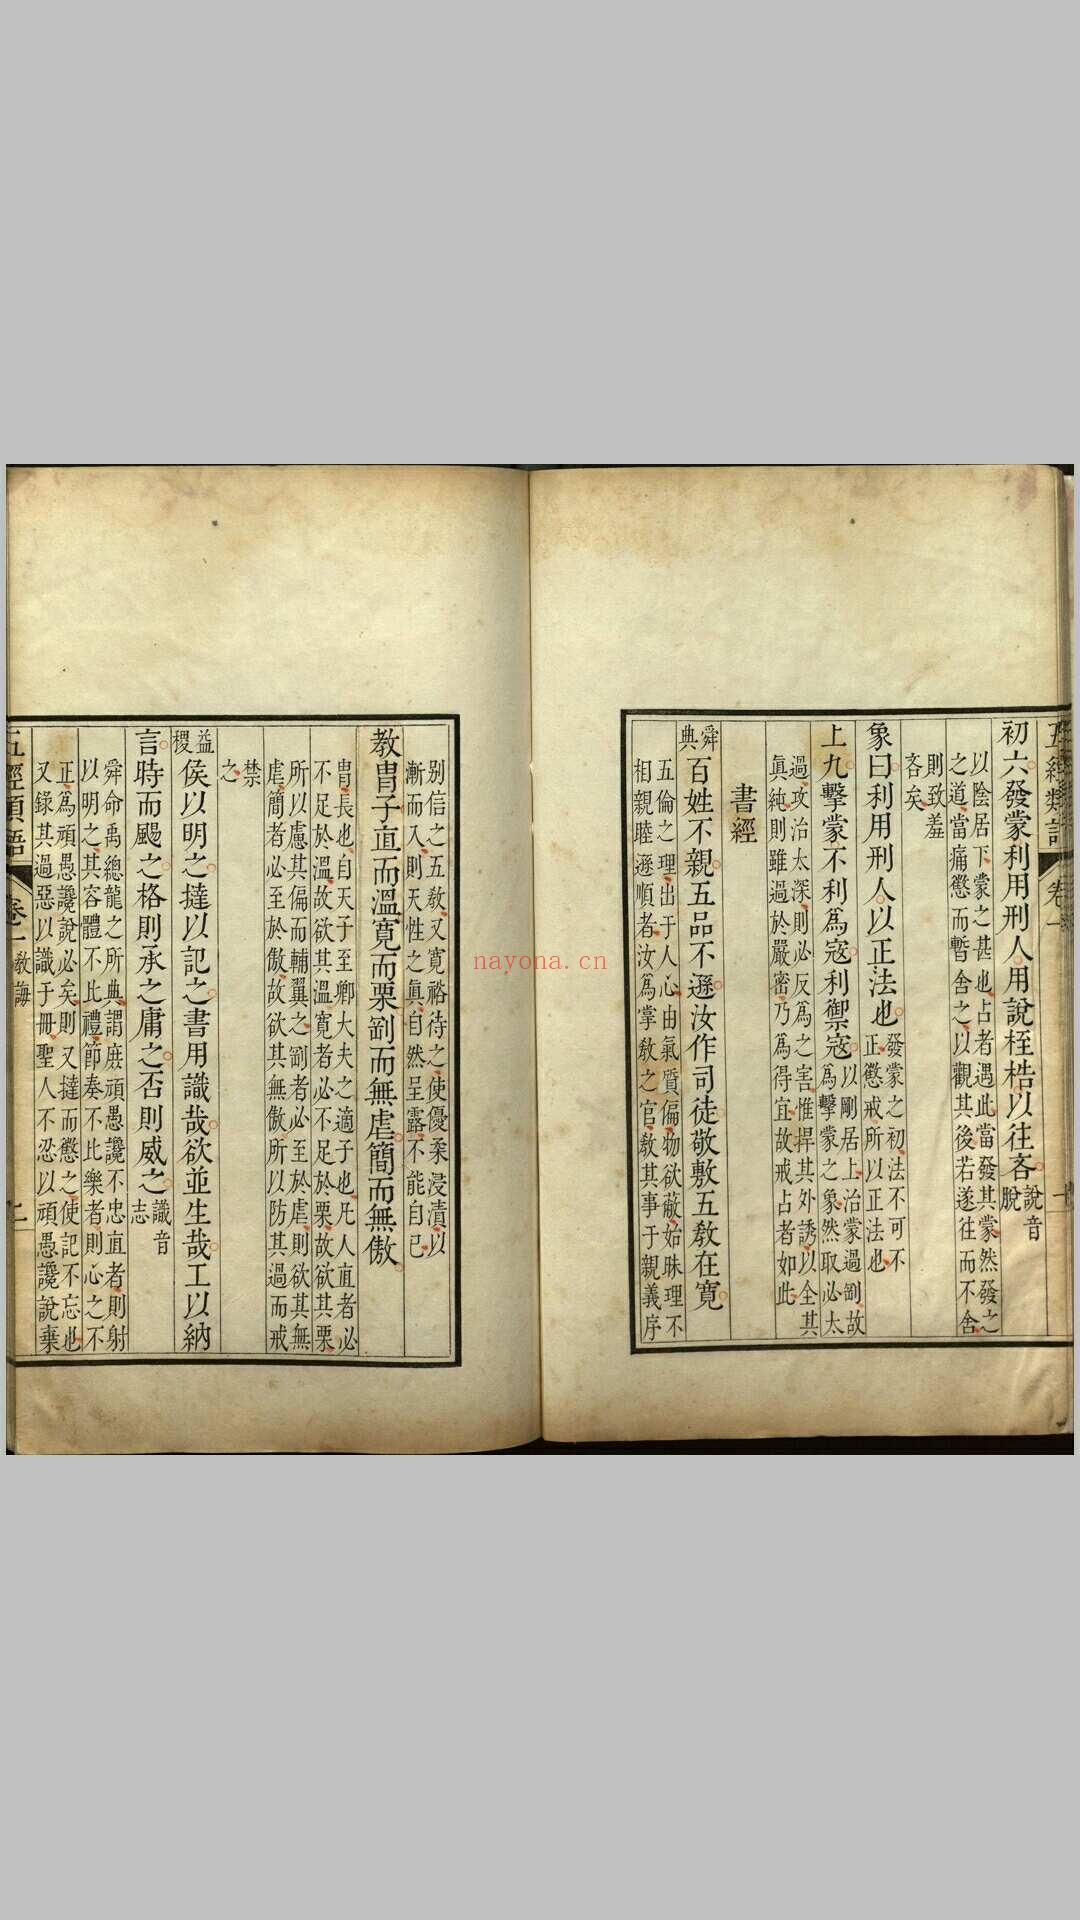 五經類語 卷一
初六發蒙利用刑人用說桎梏以往吝 說音脫
以陰居下蒙之甚也占者遇此當發其蒙然發之
之道當痛懲而暫舍之以觀其後若遂往而不舍
則致羞
吝矣
象曰利用刑人以正法也 發蒙之初法不可不
正懲戒所以正法也
上九擊蒙不利爲寇利禦寇 以剛居上治蒙過剛故
爲擊蒙之象然取必太
過攻治太深則必反爲之害惟捍其外誘以全其
眞純則雖過於嚴密乃爲得宜故戒占者如此
書經
舜典 百姓不親五品不遜汝作司徒敬敷五敎在寬
五倫之理出于人心由氣質偏物欲蔽始昧理不
相親睦遜順者汝爲掌敎之官敎其事于親義序
别信之五敎又寛裕待之使優柔浸漬以
漸而入則天性之眞自然呈露不能自已
教胄子直而溫寬而栗剛而無虐簡而無傲
胄長也自天子至卿大夫之適子也凡人直者必
不足於溫故欲其溫寛者必不足於栗故欲其栗
所以慮其偏而輔翼之剛者必至於虐則欲其無
虐簡者必至於傲故欲其無傲所以防其過而戒
禁
之
益稷 侯以明之撻以記之書用識哉欲並生哉工以納
言時而颺之格則承之庸之否則威之 識音志
舜命禹總龍之所典謂庶頑愚讒不忠直者則射
以明之其容體不比禮節奏不比樂者則心之不
正爲頑愚讒說必矣則又撻而懲之使記不忘也
又錄其過惡以識于冊聖人不忍以頑愚讒說棄
五經類語 卷一 教誨 二
nayona.cn